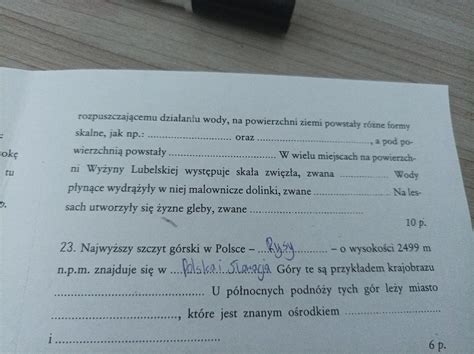 rozpuszczającemu działaniu wody, na powierzchni ziemi powstały różne formy
skalne, jak np.: .................................. oraz .................................., a pod po-
okę wierzchnią powstały .................................. W wielu miejscach na powierzch-
tu ni Wyżyny Lubelskiej występuje skała zwięzła, zwana .................. Wody
płynące wydrążyły w niej malownicze dolinki, zwane .................. Na les-
sach utworzyły się żyzne gleby, zwane ..................................
10 p.
23. Najwyższy szczyt górski w Polsce – ...Rysy............ – o wysokości 2499 m
n.p.m. znajduje się w ....Polska i Słowacja Góry te są przykładem krajobrazu
.................................................. U północnych podnóży tych gór leży miasto
..................................., które jest znanym ośrodkiem ..................................
i ..................................
6 p.